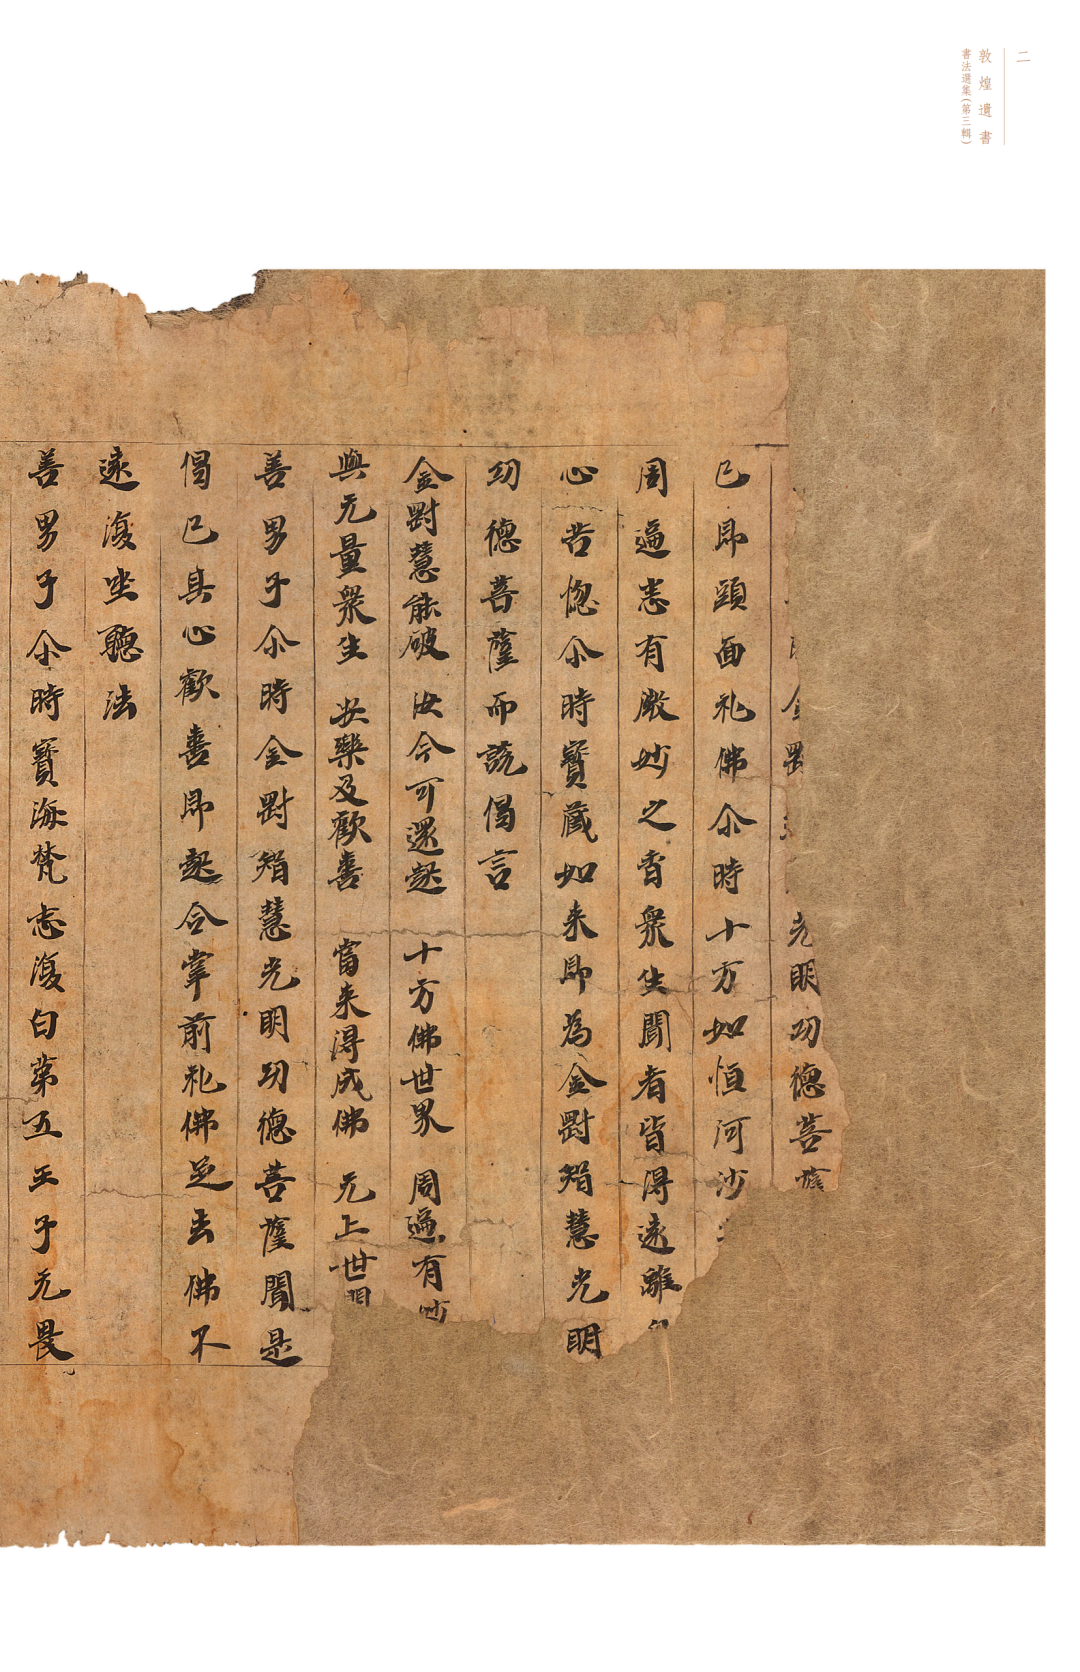 二
敦煌遺書
書法選集(第三輯)
金剛光明功德菩薩
已即頭面礼佛尒時十方如恒河沙
周遍悉有微妙之香衆生聞者皆得遠離
心苦惱尒時寶藏如来即為金剛智慧光明
功德菩薩而說偈言
金剛慧能破 汝今可還起 十方佛世界 周遍有妙
與无量衆生 安樂及歡喜 當来得成佛 无上世間
善男子尒時金剛智慧光明功德菩薩聞是
偈已其心歡喜即起合掌前礼佛足去佛不
遠復坐聽法
善男子尒時寶海梵志復白第五王子无畏